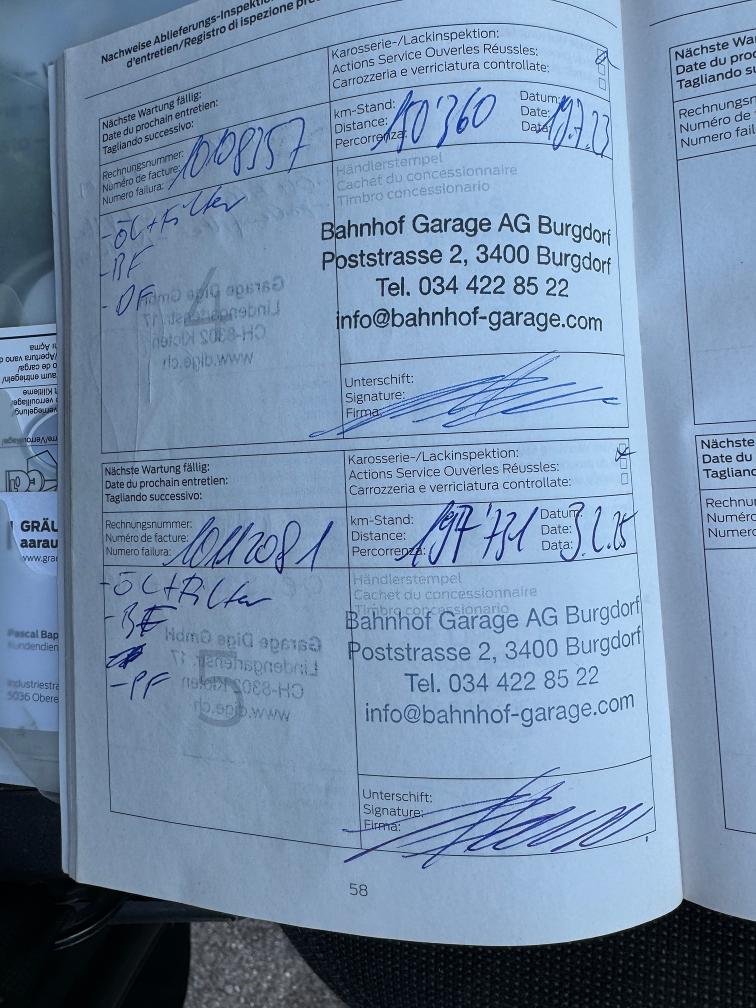 Nachweise Ablieferungs-Inspekti
d'entretien/Registro di ispezione pre
Nächste Wartung fällig:
Date du prochain entretien:
Tagliando successivo:
Karosserie-/Lackinspektion:
Actions Service Ouverles Réussles:
Carrozzeria e verriciatura controllate:
Rechnungsnummer:
Numéro de facture:
Numero failura:
10108357
km-Stand:
Distance:
Percorrenza:
150'360
Datum:
Date:
Data:
19.7.23
- ÖL+Filter
- BF
- OF
Händlerstempel
Cachet du concessionnaire
Timbro concessionario
Bahnhof Garage AG Burgdorf
Poststrasse 2, 3400 Burgdorf
Tel. 034 422 85 22
info@bahnhof-garage.com
4
Garage Dige GmbH
Lindengartenstr. 17
CH-8302 Kloten
www.dige.ch
Unterschift:
Signature:
Firma:
Nächste Wartung fällig:
Date du prochain entretien:
Tagliando successivo:
Karosserie-/Lackinspektion:
Actions Service Ouverles Réussles:
Carrozzeria e verriciatura controllate:
Rechnungsnummer:
Numéro de facture:
Numero failura:
10112081
km-Stand:
Distance:
Percorrenza:
197'731
Datum:
Date:
Data:
3.2.25
- ÖL+Filter
- BF
- PF
Händlerstempel
Cachet du concessionnaire
Timbro concessionario
Bahnhof Garage AG Burgdorf
Poststrasse 2, 3400 Burgdorf
Tel. 034 422 85 22
info@bahnhof-garage.com
5
Garage Dige GmbH
Lindengartenstr. 17
CH-8302 Kloten
www.dige.ch
Unterschift:
Signature:
Firma:
58
Nächste War
Date du proc
Tagliando su
Rechnungsn
Numéro de
Numero fail
Nächste
Date du
Tagliand
Rechnu
Numéro
Numero
GRÄU
aarau
www.gra
Pascal Bap
Kundendien
Industriestra
5036 Obere